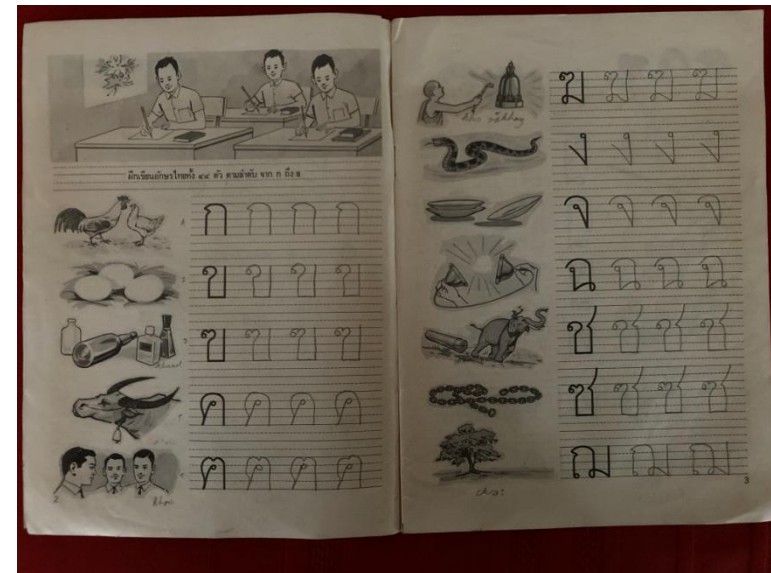 ฝึกเขียนอักษรไทยทั้ง ๔๔ ตัว ตามลำดับ จาก ก ถึง ฮ
ก ก ก ก
ข ข ข ข
ฃ ฃ ฃ ฃ
ค ค ค ค
ฅ ฅ ฅ ฅ
2
ฆ ฆ ฆ ฆ
ง ง ง ง
จ จ จ จ
ฉ ฉ ฉ ฉ
ช ช ช ช
ซ ซ ซ ซ
ฌ ฌ ฌ
3